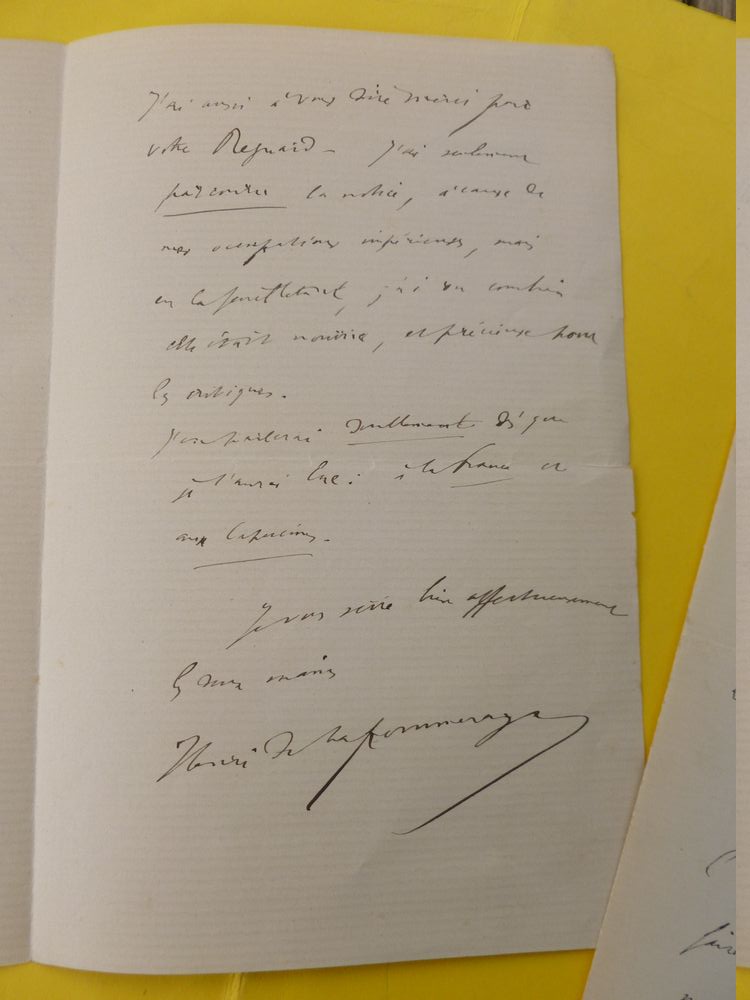 J'ai aussi à vous dire merci pour
votre Regnard – J'ai seulement
parcouru la notice, à cause de
mes occupations impérieuses, mais
en la feuilletant, j'ai vu combien
elle était nourrie, et précieuse pour
les critiques.
J'en parlerai dès que
je l'aurai lue : à la France et
aux Capucines.
Je vous serre bien affectueusement
les deux mains
Henri de Lapommeraye